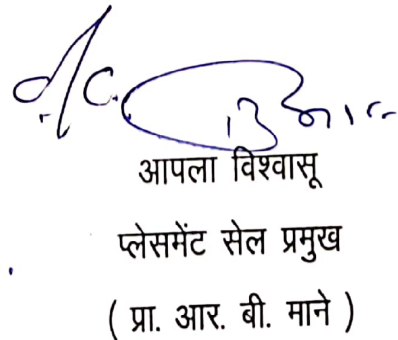 आपला विश्वासू
प्लेसमेंट सेल प्रमुख
( प्रा. आर. बी. माने )